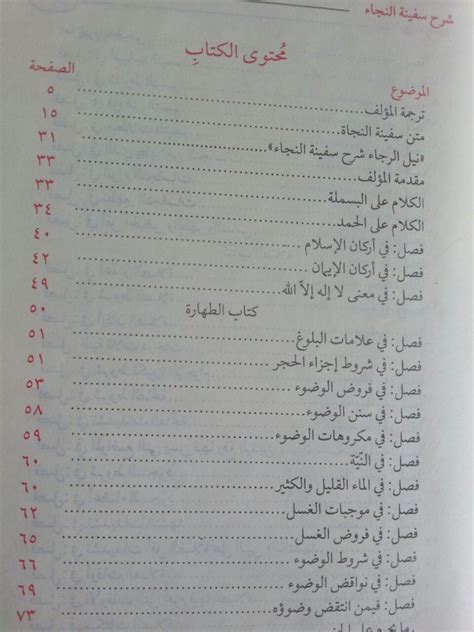 شرح سفينة النجاء
مُحتوى الكتابِ
الموضوع الصفحة
ترجمة المؤلف ٥
متن سفينة النجاة ١٥
«نيل الرجاء شرح سفينة النجاء» ٣١
مقدمة المؤلف ٣٣
الكلام على البسملة ٣٣
الكلام على الحمد ٣٤
فصل: في أركان الإسلام ٤٠
فصل: في أركان الإيمان ٤٢
فصل: في معنى لا إله إلاّ الله ٤٩
كتاب الطهارة ٥٠
فصل: في علامات البلوغ ٥١
فصل: في شروط إجزاء الحجر ٥١
فصل: في فروض الوضوء ٥٣
فصل: في سنن الوضوء ٥٨
فصل: في مكروهات الوضوء ٥٩
فصل: في النيّة ٦٠
فصل: في الماء القليل والكثير ٦٠
فصل: في موجبات الغسل ٦٢
فصل: في فروض الغسل ٦٥
فصل: في شروط الوضوء ٦٦
فصل: في نواقض الوضوء ٦٩
فصل: فيمن انتقض وضوؤه ٧٣